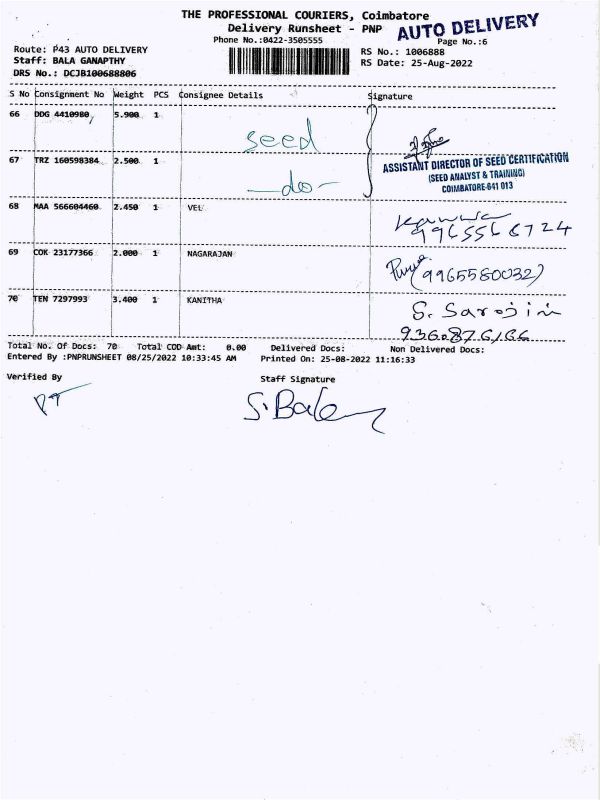 THE PROFESSIONAL COURIERS, Coimbatore
Delivery Runsheet - PNP
AUTO DELIVERY
Phone No.:0422-3505555
Page No.:6
Route: P43 AUTO DELIVERY
RS No.: 1006888
Staff: BALA GANAPTHY
RS Date: 25-Aug-2022
DRS No.: DCJB100688806
S No Consignment No Weight PCS Consignee Details Signature
66 DDG 4410980 5.900 1
seed
67 TRZ 160598384 2.500 1
-do-
ASSISTANT DIRECTOR OF SEED CERTIFICATION
(SEED ANALYST & TRAINING)
COIMBATORE-641 013
68 MAA 566604460 2.450 1 VEL
9965568724
69 COK 23177366 2.000 1 NAGARAJAN
(9965580032)
70 TEN 7297993 3.400 1 KANITHA
S. Sarojini
Total No. Of Docs: 70 Total COD Amt: 0.00 Delivered Docs: Non Delivered Docs:
Entered By :PNPRUNSHEET 08/25/2022 10:33:45 AM Printed On: 25-08-2022 11:16:33
Verified By Staff Signature
PT
S.Bala